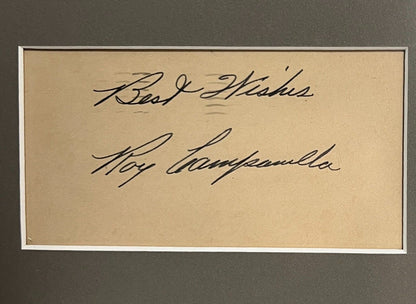 Best Wishes
Roy Campanella